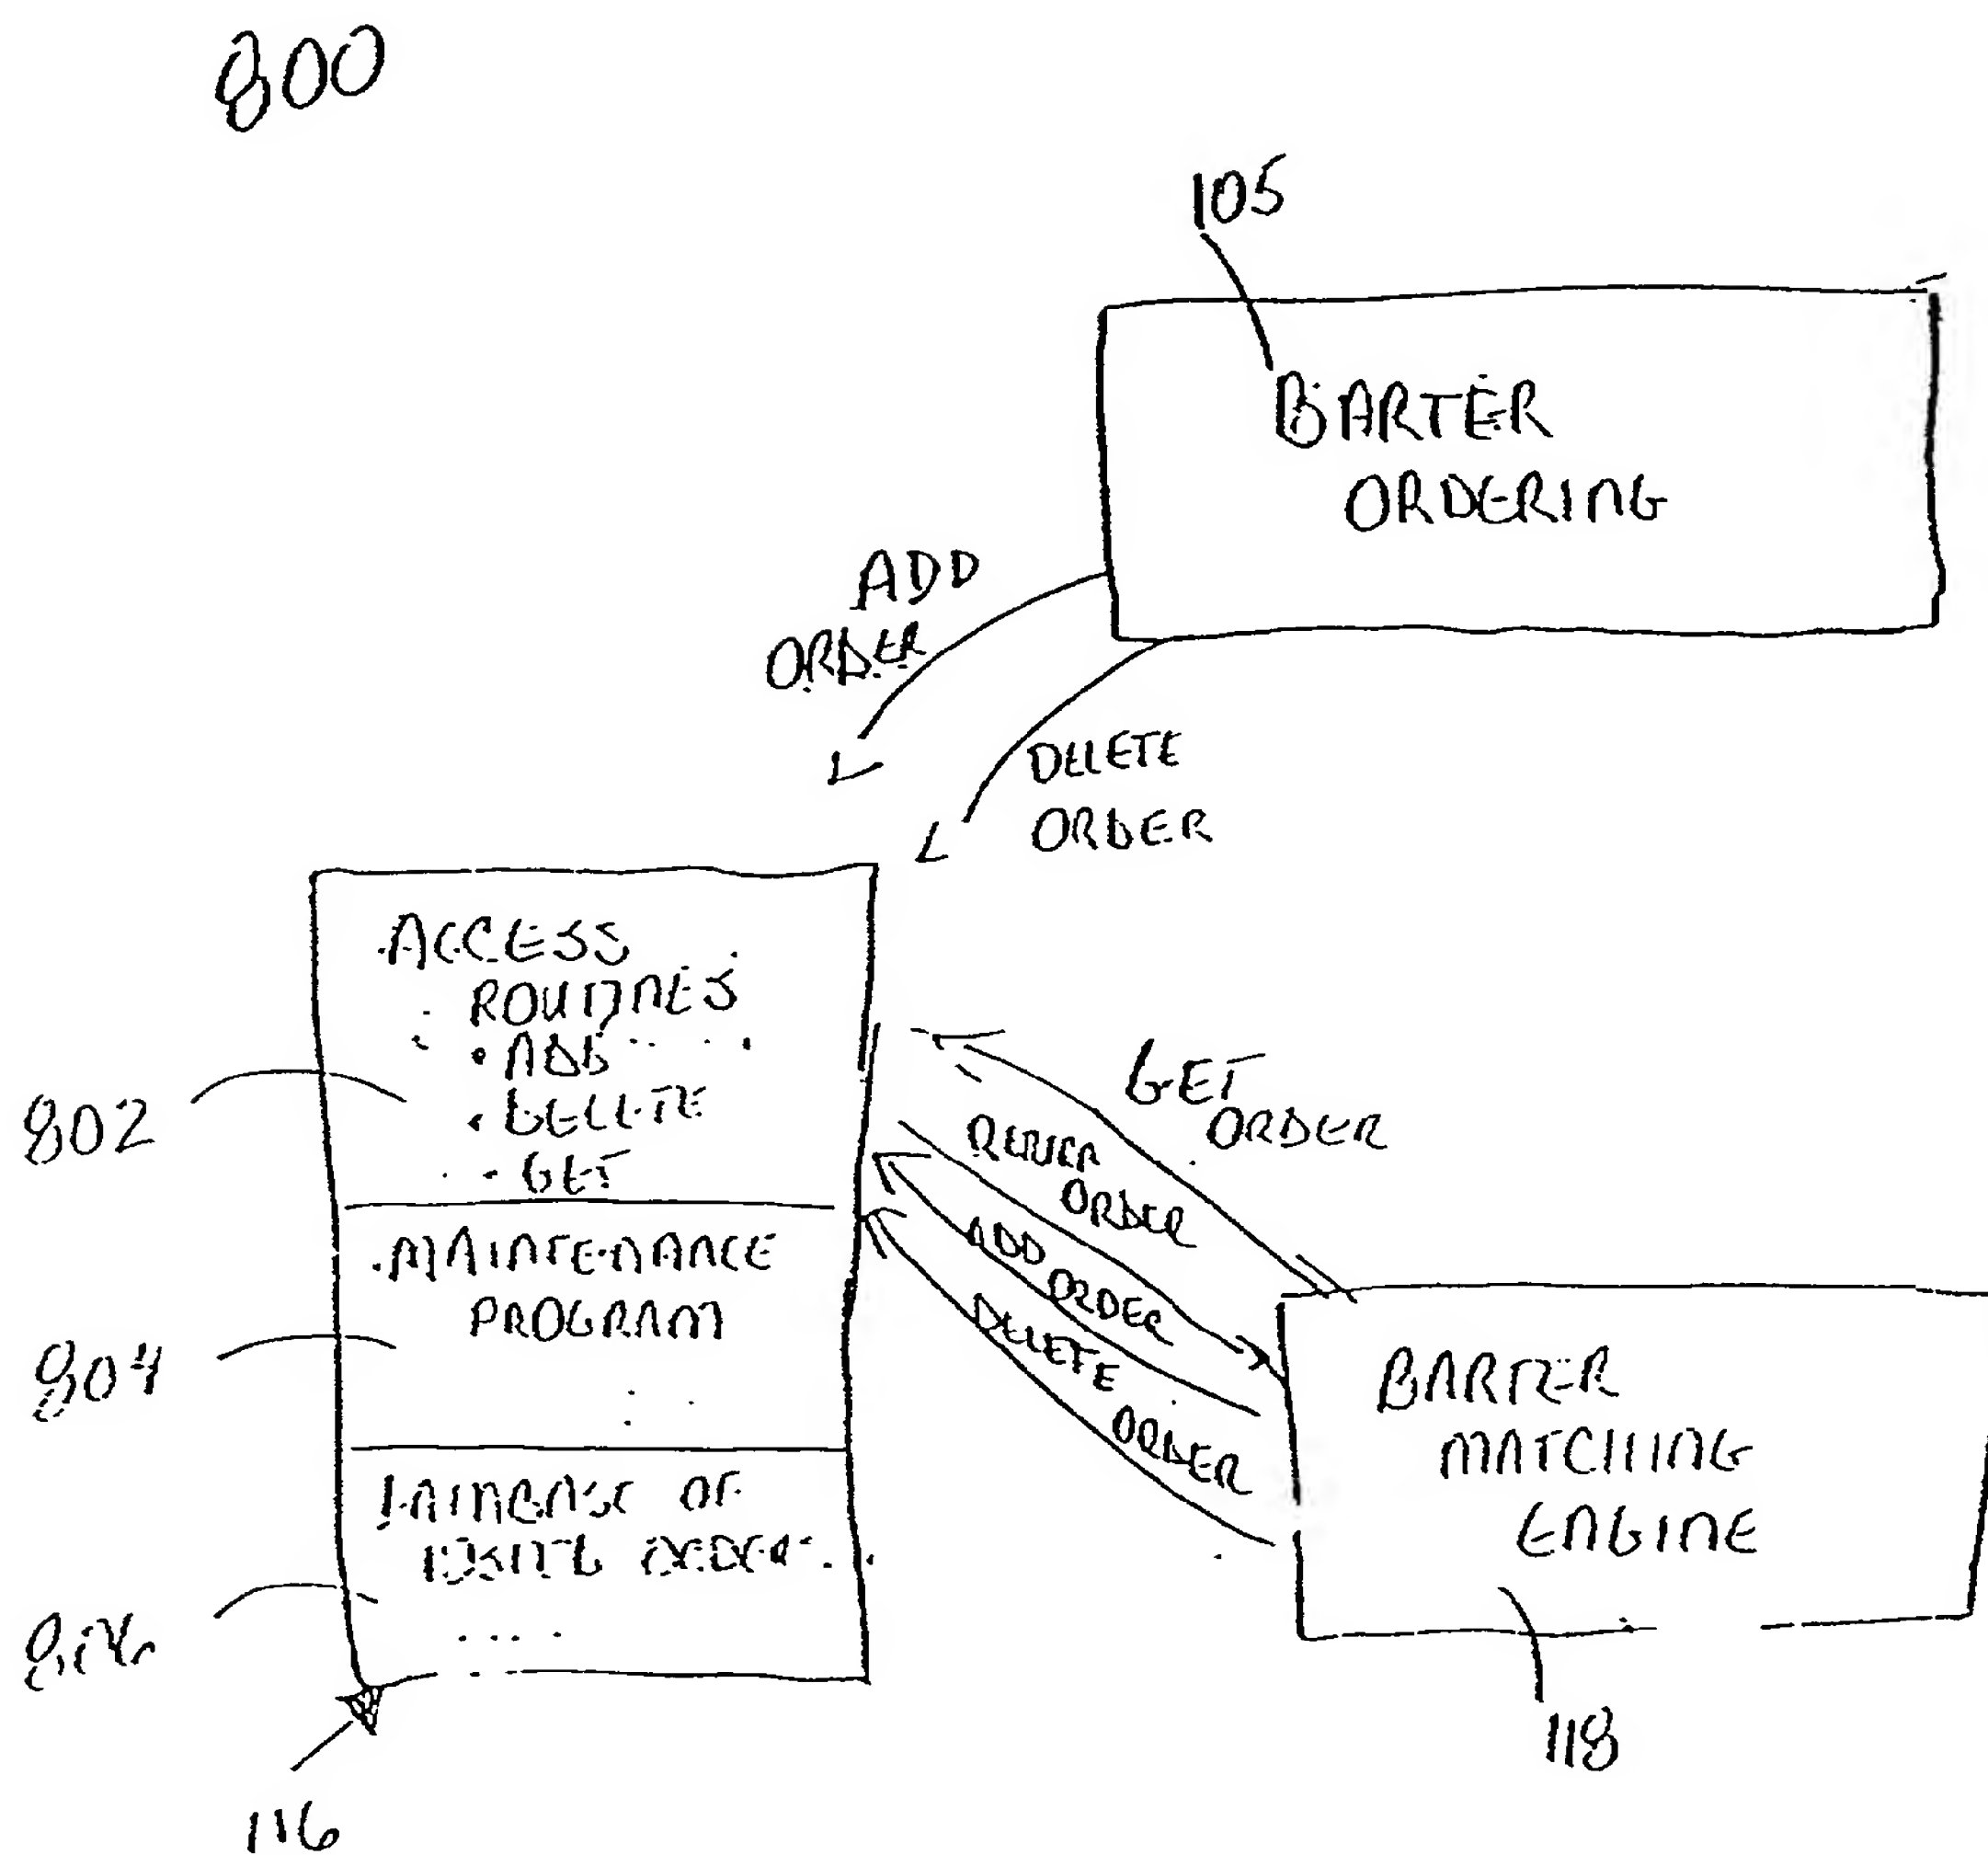 800
105
BARTER
ORDERING
ADD
ORDER
DELETE
ORDER
ACCESS
ROUTINES
• ADD
• DELETE
• GET
802
MAINTENANCE
PROGRAM
804
OF
806
116
GET
ORDER
ORDER
ADD
ORDER
DELETE
ORDER
BARTER
MATCHING
ENGINE
118